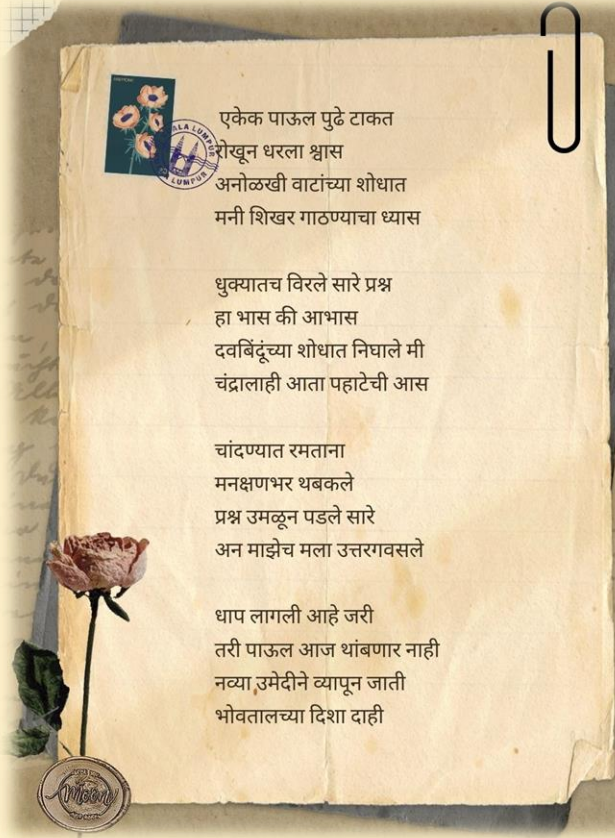 एकेक पाऊल पुढे टाकत
रोखून धरला श्वास
अनोळखी वाटांच्या शोधात
मनी शिखर गाठण्याचा ध्यास
धुक्यातच विरले सारे प्रश्न
हा भास की आभास
दवबिंदूंच्या शोधात निघाले मी
चंद्रालाही आता पहाटेची आस
चांदण्यात रमताना
मनक्षणभर थबकले
प्रश्न उमळून पडले सारे
अन माझेच मला उत्तरगवसले
धाप लागली आहे जरी
तरी पाऊल आज थांबणार नाही
नव्या उमेदीने व्यापून जाती
भोवतालच्या दिशा दाही
Moon